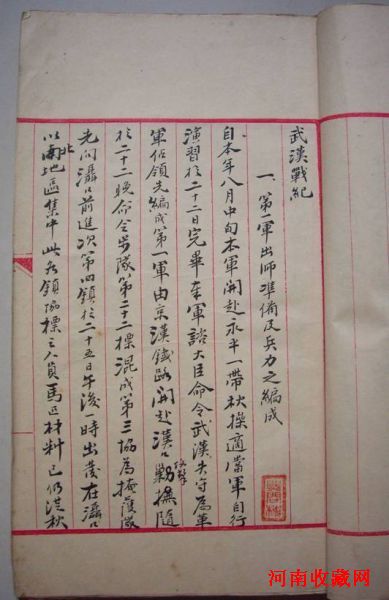 武漢戰紀
一、第一軍出師準備及兵力之編成
自本年八月中旬本軍開赴永平一帶秋操適當軍自行
演習於二十二日完畢奉軍諮大臣命令武漢失守為革
軍佔領先編成第一軍由京漢鐵路開赴漢口剿撫隨
於二十二晚命令步隊第二十二標混成第三協為掩護隊
先向灄口前進次第四鎮於二十五日午後一時出發在灄口
以北地區集中此各鎮協標之人員馬匹材料已仍從秋
河南收藏网